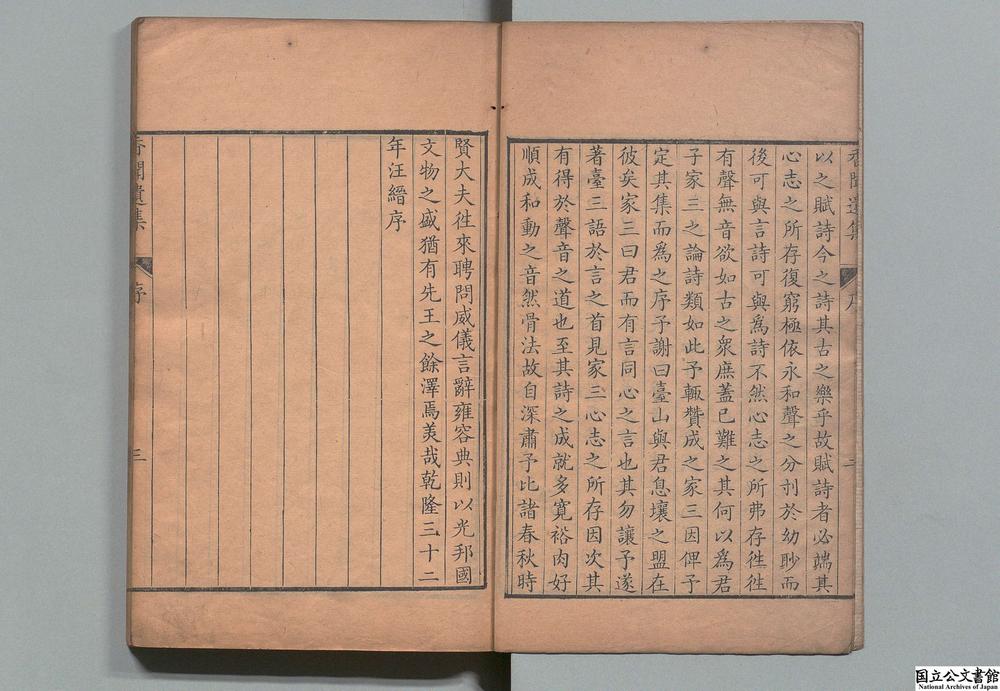 以之賦詩今之詩其古之樂乎故賦詩者必端其
心志之所存復窮極依永和聲之分刌於幼眇而
後可與言詩可與為詩不然心志之所弗存徃徃
有聲無音欲如古之衆庶蓋已難之其何以為君
子家三之論詩類如此予輒贊成之家三因俾予
定其集而為之序予謝曰臺山與君息壤之盟在
彼矣家三曰君而有言同心之言也其勿讓予遂
著臺三語於言之首見家三心志之所存因次其
有得於聲音之道也至其詩之成就多寛裕肉好
順成和動之音然骨法故自深肅予比諸春秋時
二
賢大夫徃來聘問威儀言辭雍容典則以光邦國
文物之盛猶有先王之餘澤焉美哉乾隆三十二
年汪縉序
序
三
国立公文書館
National Archives of Japan